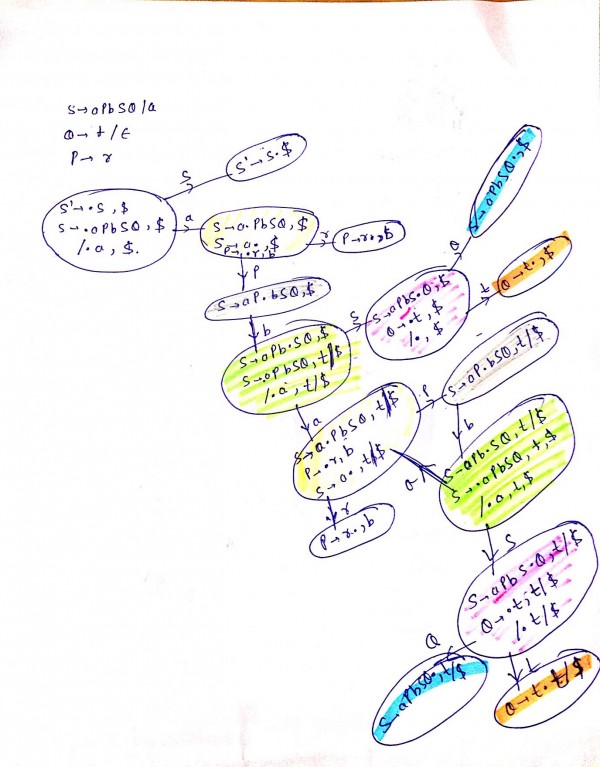 S→aPbSQ/a
Q→t/ε
P→r
S'→s.$
S
S'→.S,$
S→.aPbSQ,$
/.a,$.
a
S→a.PbSQ,$
S→a.,$
P→.r,b
r
P→r.,$
P
S→aP.bSQ,$
b
S→aPb.SQ,$
S→.aPbSQ,t/$
/.a,t/$
S
S→aPbS.Q,$
Q→.t,$
/.,$
Q
S→aPbSQ.,$
t
Q→t.,$
a
S→a.PbSQ,t/$
P→.r,b
S→a.,t/$
r
P→r.,b
P
S→aP.bSQ,t/$
b
S→aPb.SQ,t/$
S→.aPbSQ,t,$
/.a,t,$
a
S
S→aPbS.Q,t/$
Q→.t,t/$
/.t/$
Q
S→aPbSQ.,t/$
t
Q→t.t/$